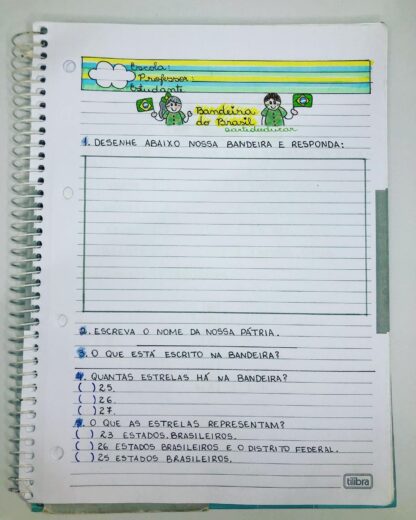 Escola:
Professor:
Estudante
Bandeira
do Brasil
partideducar
1. DESENHE ABAIXO NOSSA BANDEIRA E RESPONDA:
2. ESCREVA O NOME DA NOSSA PÁTRIA.
3. O QUE ESTÁ ESCRITO NA BANDEIRA?
4. QUANTAS ESTRELAS HÁ NA BANDEIRA?
( ) 25.
( ) 26.
( ) 27.
5. O QUE AS ESTRELAS REPRESENTAM?
( ) 23 ESTADOS BRASILEIROS.
( ) 26 ESTADOS BRASILEIROS E O DISTRITO FEDERAL.
( ) 25 ESTADOS BRASILEIROS.
tilibra